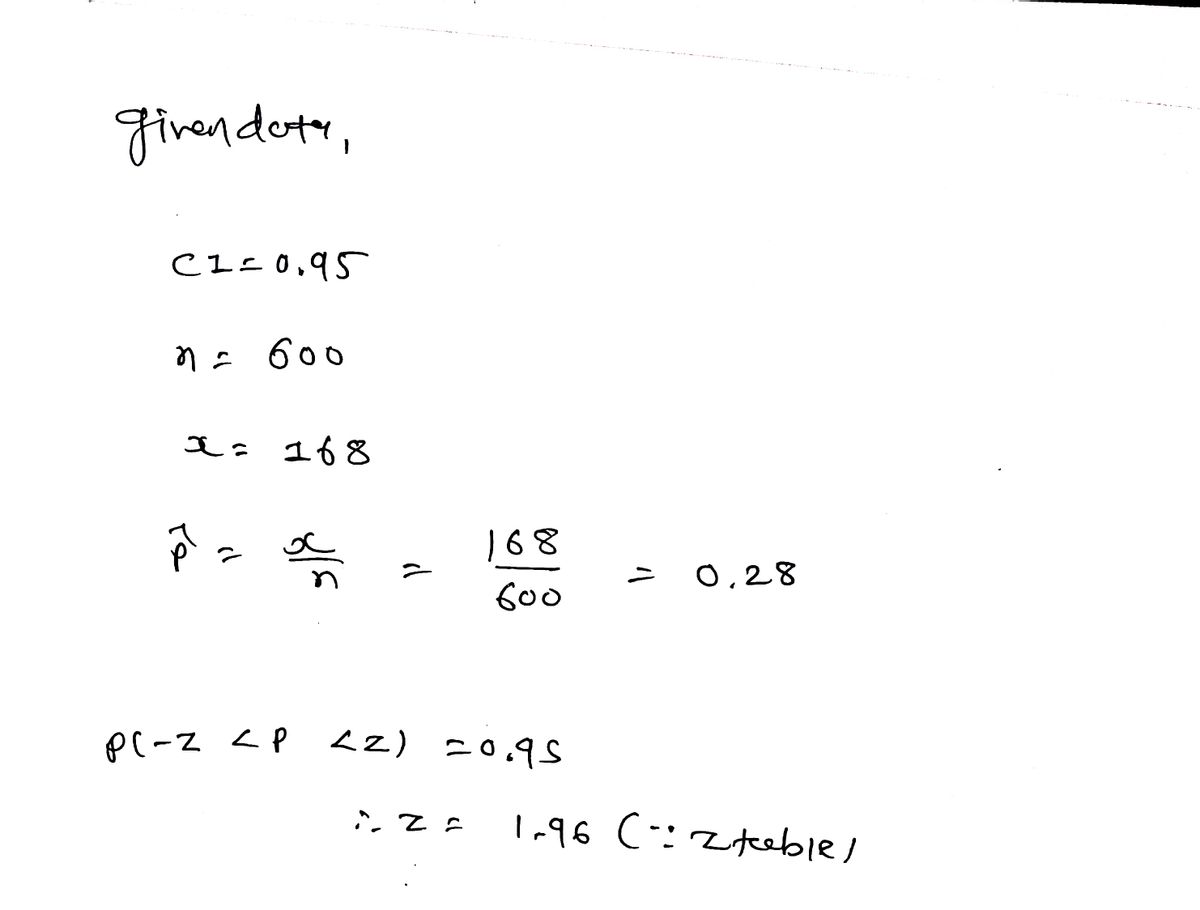 given data,
CI = 0.95
n = 600
x = 168
p̂ = x/n = 168/600 = 0.28
P(-Z < P < Z) = 0.95
∴ Z = 1.96 (∵ Z table)